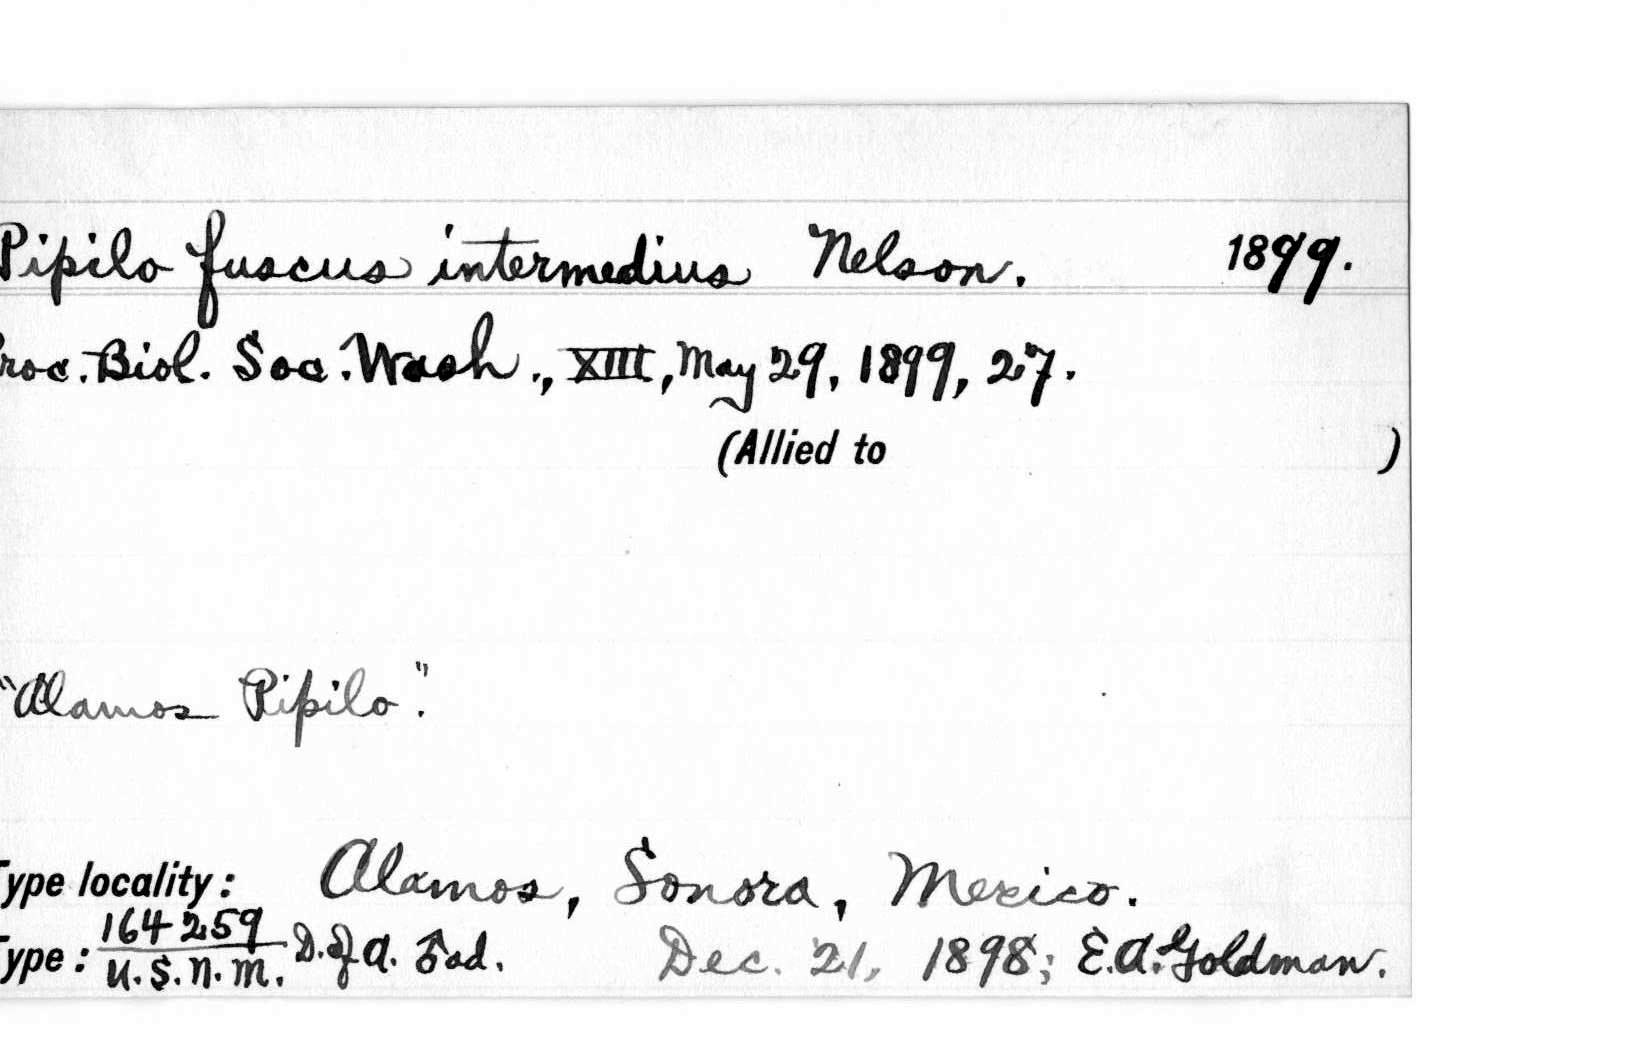 Pipilo fuscus intermedius Nelson. 1899.
Proc. Biol. Soc. Wash., XIII, May 29, 1899, 27.
(Allied to )
"Alamos Pipilo".
Type locality: Alamos, Sonora, Mexico.
Type: 164259 U.S.N.M. D. of A. ad. Dec. 21, 1898; E.A. Goldman.